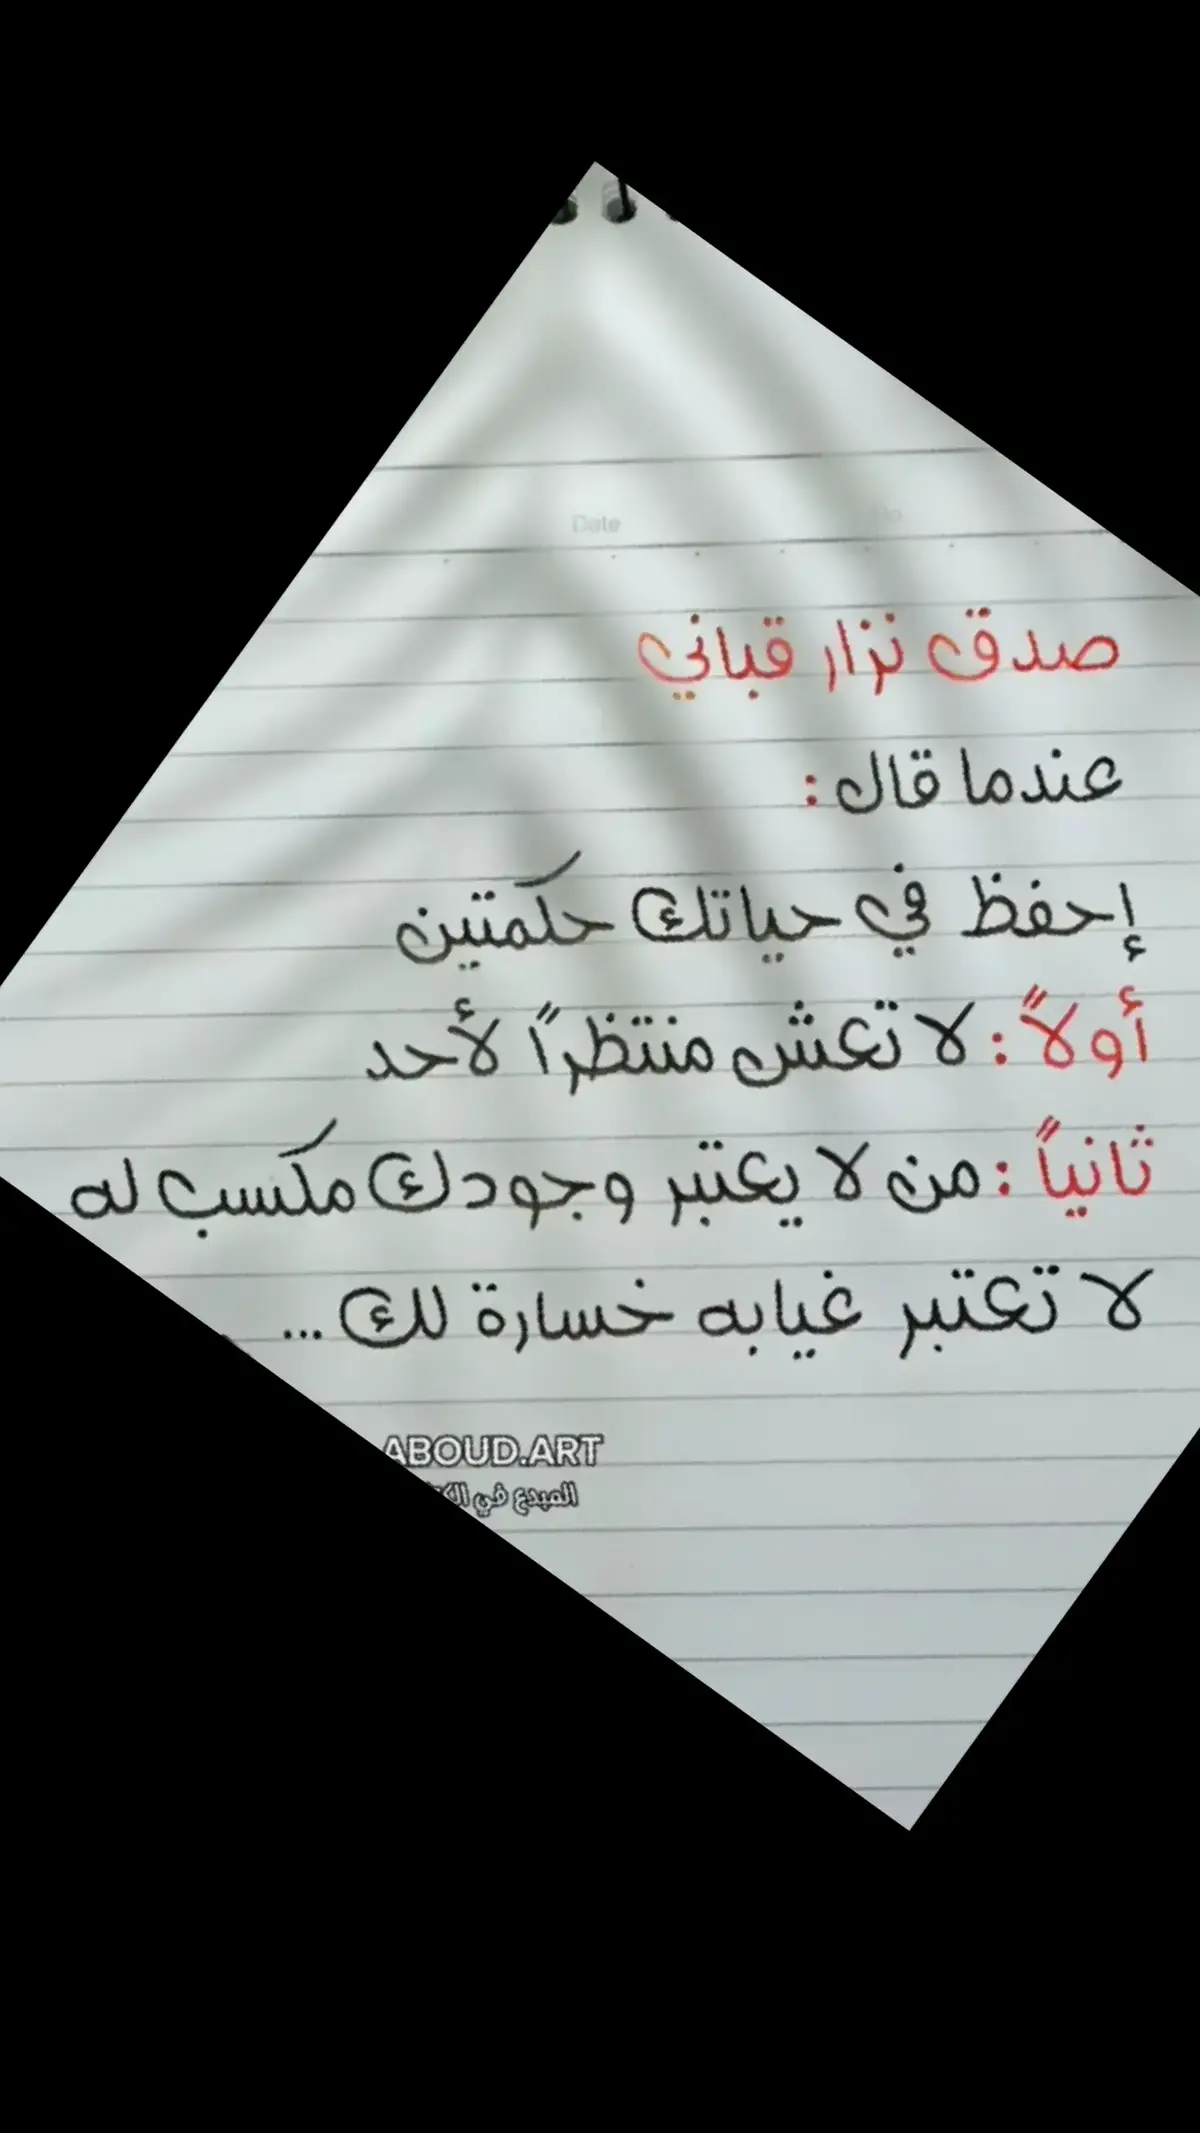 Date
No
صدق نزار قباني
عندما قال :
إحفظ في حياتك حكمتين
أولاً : لا تعش منتظراً لأحد
ثانياً : من لا يعتبر وجودك مكسب له
لا تعتبر غيابه خسارة لك ...
ABOUD.ART
المبدع في